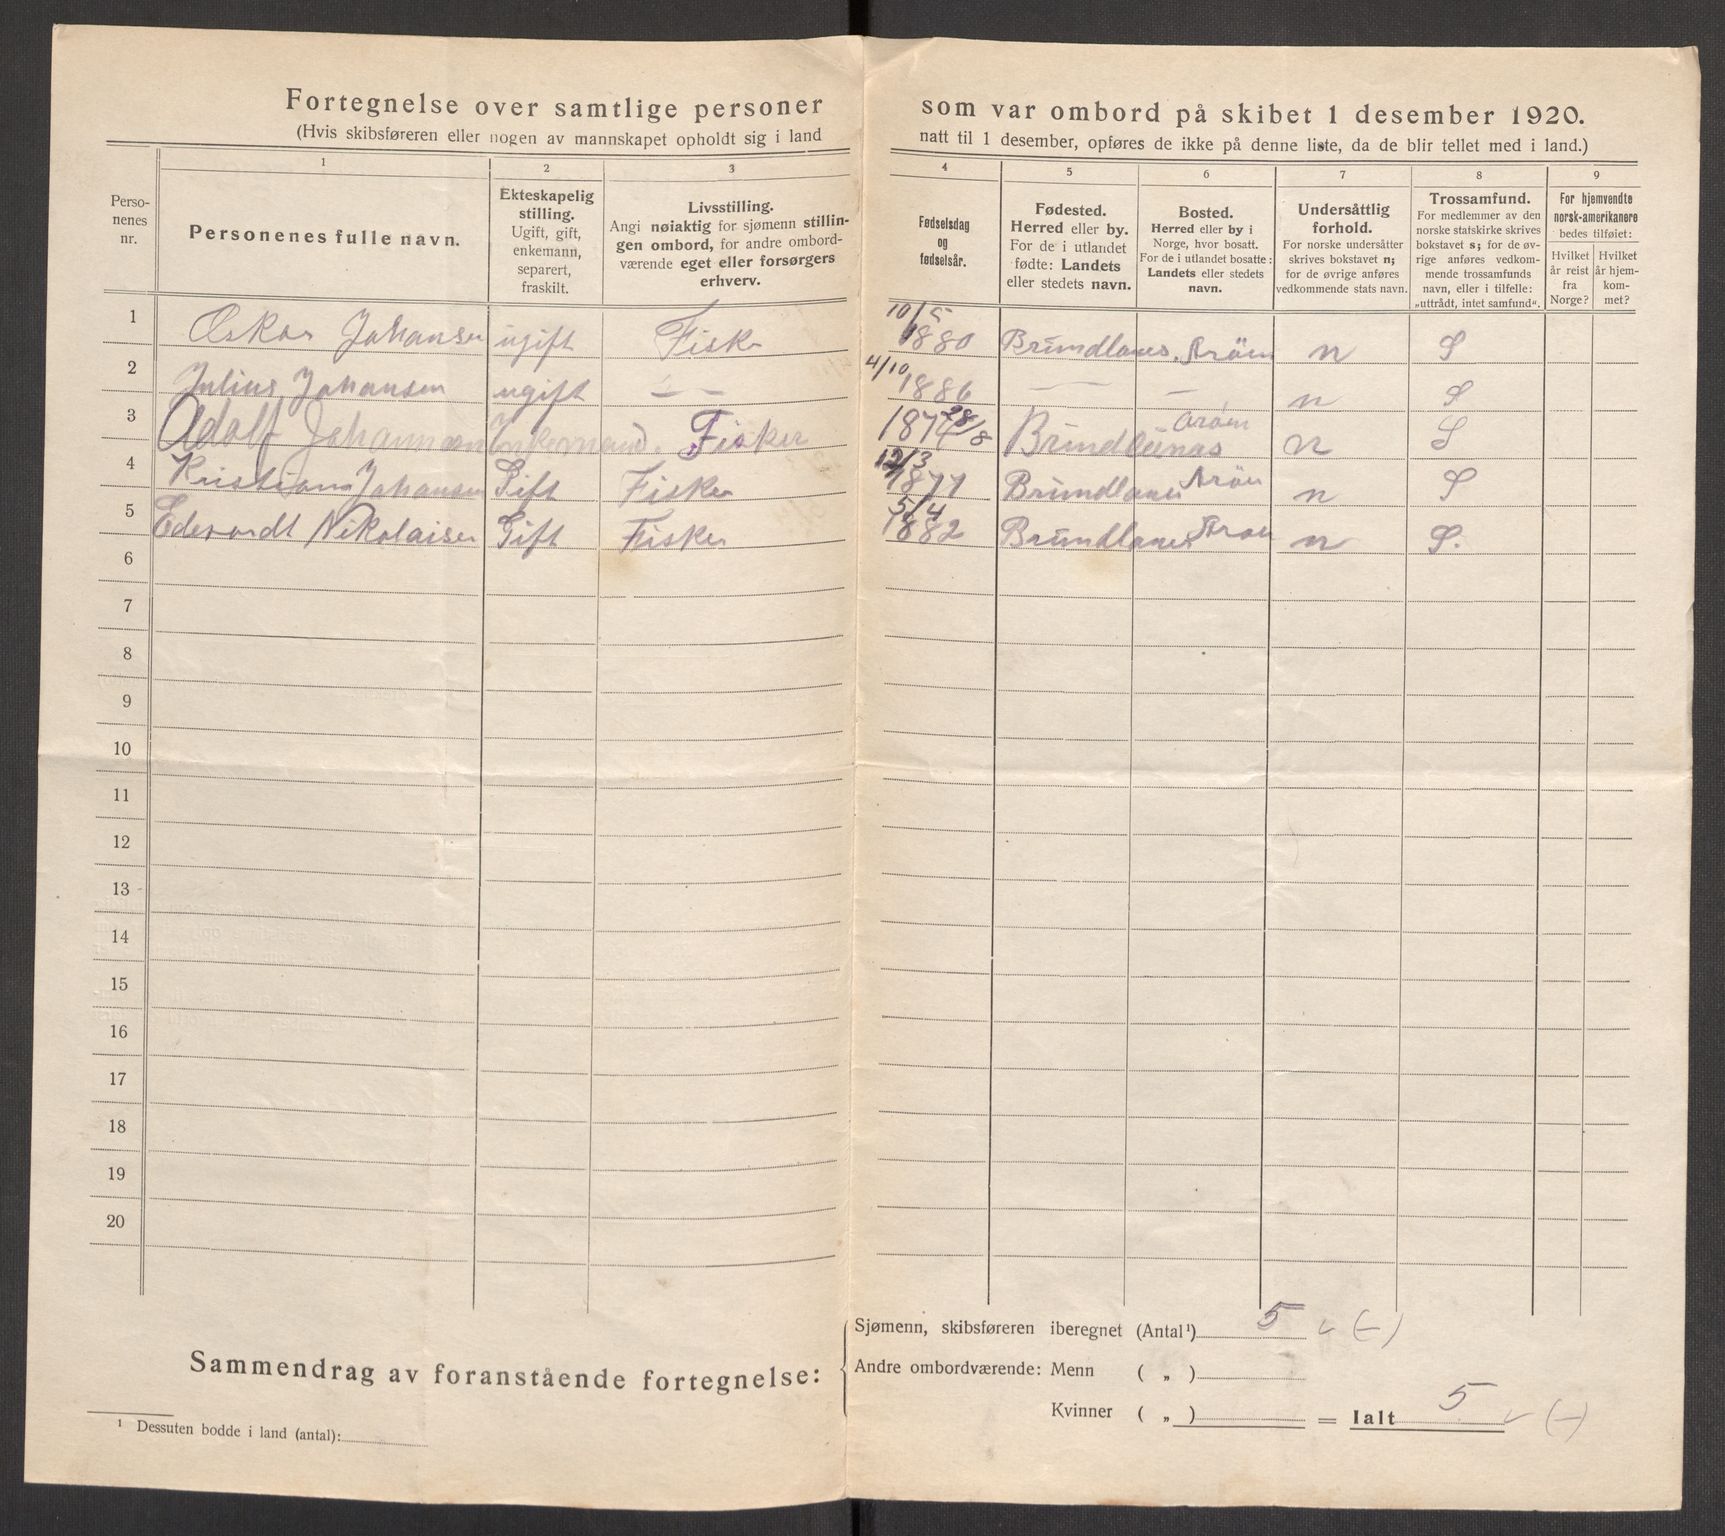 Fortegnelse over samtlige personer som var ombord på skibet 1 desember 1920.
(Hvis skibsføreren eller nogen av mannskapet opholdt sig i land natt til 1 desember, opføres de ikke på denne liste, da de blir tellet med i land.)
Personenes nr.
1
Personenes fulle navn.
2
Ekteskapelig stilling.
Ugift, gift, enkemann, separert, fraskilt.
3
Livsstilling.
Angi nøiaktig for sjømenn stillingen ombord, for andre ombordværende eget eller forsørgers erhverv.
4
Fødselsdag og fødselsår.
5
Fødested.
Herred eller by.
For de i utlandet fødte: Landets eller stedets navn.
6
Bosted.
Herred eller by i Norge, hvor bosatt.
For de i utlandet bosatte: Landets eller stedets navn.
7
Undersåttlig forhold.
For norske undersåtter skrives bokstavet n; for de øvrige anføres vedkommende stats navn.
8
Trossamfund.
For medlemmer av den norske statskirke skrives bokstavet s; for de øvrige anføres vedkommende trossamfunds navn, eller i tilfelle: „uttrådt, intet samfund“.
9
For hjemvendte norsk-amerikanere bedes tilføiet:
Hvilket år reist fra Norge?
Hvilket år hjemkommet?
1 Oskar Johansen ugift Fisker 10/5 1880 Brundlanes Aröen n S
2 Julius Johansen ugift — — 4/10 1886 — — — n S
3 Adolf Johannesen Enkemand. Fisker 1874 28/8 Brundlanes Aröen n S
4 Kristian Johansen Gift Fisker 12/3 1877 Brundlanes Aröen n S
5 Edevardt Nikolaisen Gift Fisker 5/4 1882 Brundlanes Aroen n S.
6
7
8
9
10
11
12
13
14
15
16
17
18
19
20
Sammendrag av foranstående fortegnelse:
Sjømenn, skibsføreren iberegnet (Antal¹) 5 (—)
Andre ombordværende: Menn ( „ )
Kvinner ( „ ) = Ialt 5 (—)
¹ Dessuten bodde i land (antal):